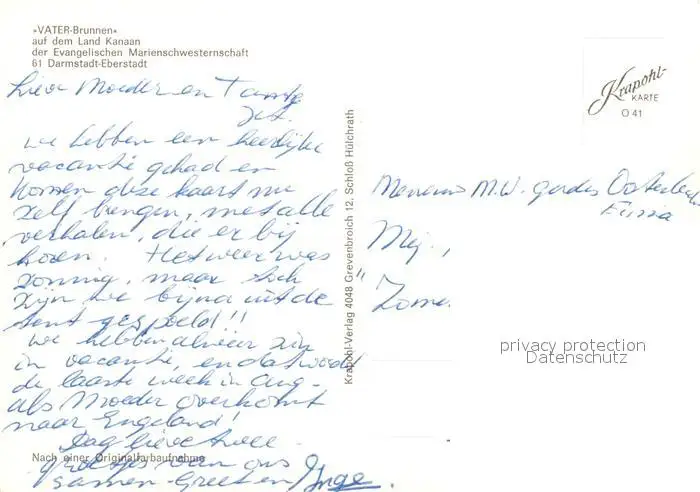 »VATER-Brunnen«
auf dem Land Kanaan
der Evangelischen Marienschwesternschaft
61 Darmstadt-Eberstadt
Lieve Moeder en Tante
Jet.
We hebben een heerlijke
vacantie gehad en
komen deze kaart nu
zelf brengen, met alle
verhalen, die er bij
horen. Het weer was
zonnig, maar toch
zijn we bijna uit de
tent gespoeld!!
We hebben alweer zin
in vacantie, en dat wordt
de laatste week in Aug.
als Moeder overkomt
naar Engeland!
Dag lieve twee
groetjes van ons
samen Greet en Inge.
Nach einer Originalfarbaufnahme
Krapohl-Verlag 4048 Grevenbroich 12, Schloß Hülchrath
Krapohl-
KARTE
O 41
Mevrouw M.W. Gerdes Oosterbeek
Mej.,
Zome
privacy protection
Datenschutz